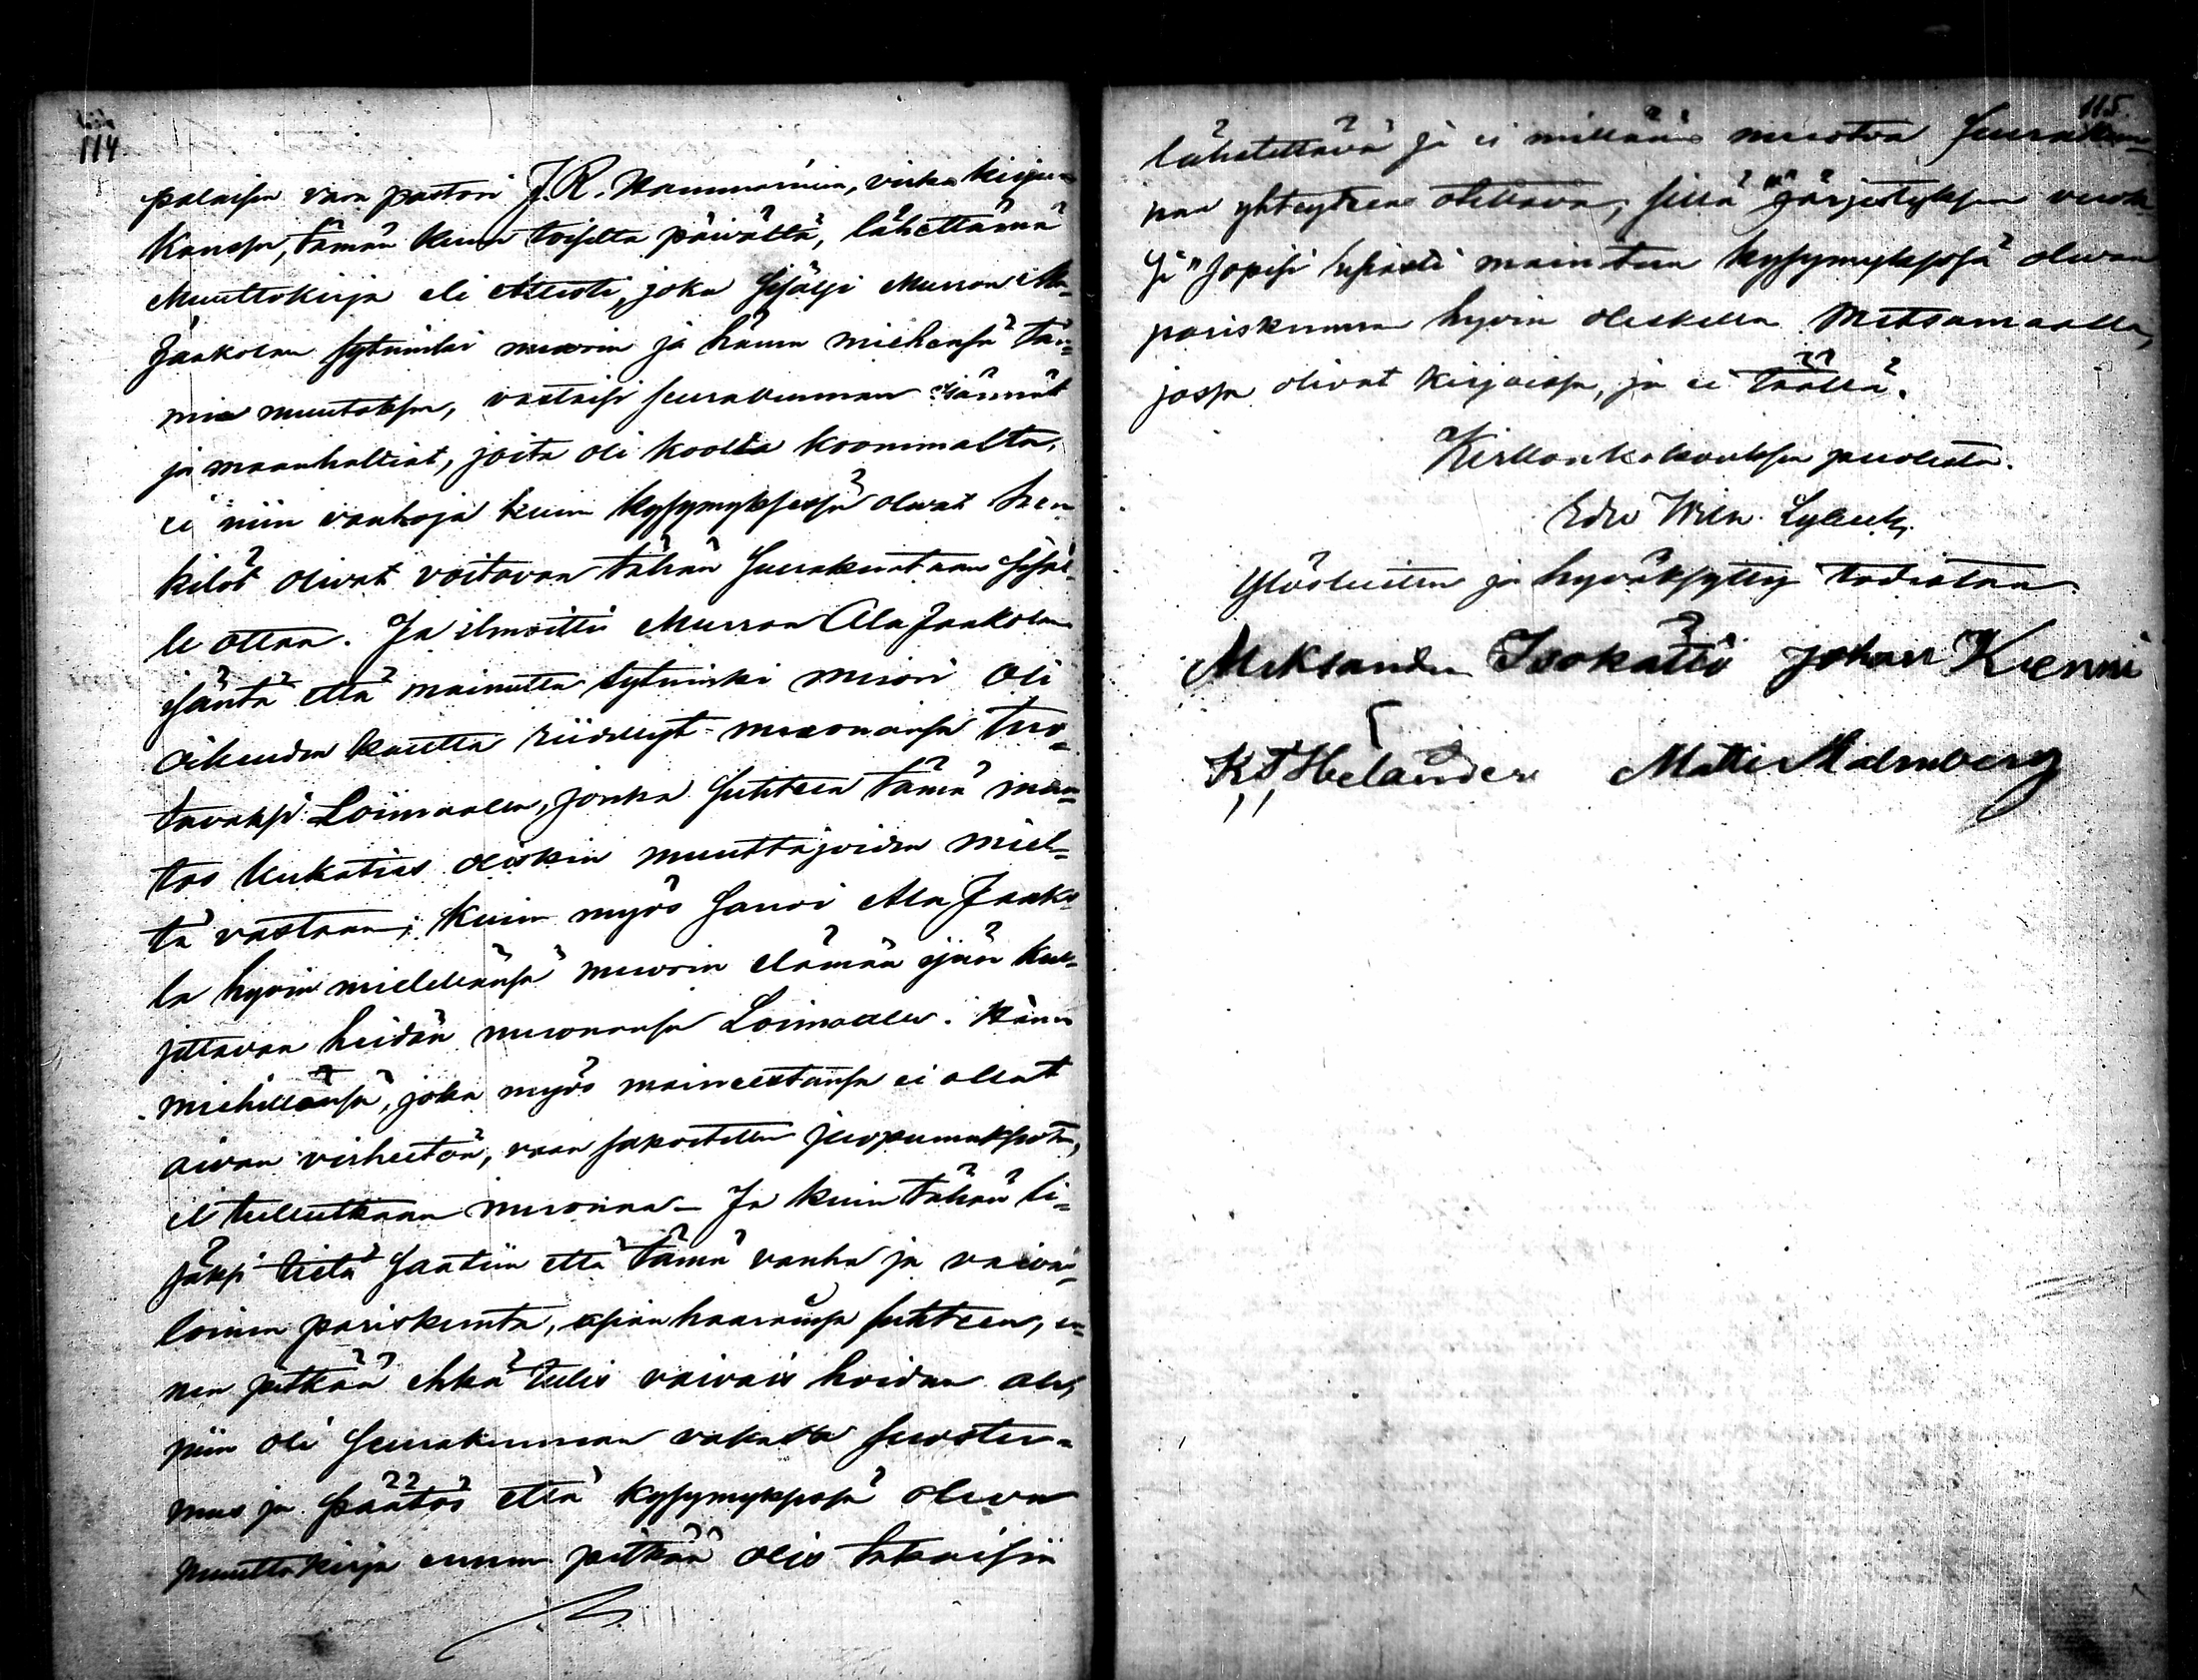 114
palaisen vara pastori J. R. Hammarinin, virka kirjan
kanssa, tämän kuun toiselta päivältä, lähettämä
Muuttokirja eli Attesti, joka sisälsi Murron Ala-
Jaakolan sytninki muorin ja hänen miehensä tän-
ne muutoksen, vastaisi seurakunnan isännät
ja maanhaltiat, joita oli koolla koommalta,
ei niin vanhoja kuin kysymyksessä olevat hen-
kilöt olivat voitavan tähän seurakuntaan sisäl-
le ottaa. Ja ilmoitti Murron Ala Jaakolan
isäntä että mainittu sytninki muori oli
oikeuden kautta riidellyt muonansa tuo-
tavaksi Loimaalle, jonka suhteen tämä muu-
tos kukaties oliskin muuttajoiden miel-
tä vastaan; kuin myös sanoi Ala Jaako-
la hyvin mielellänsä muorin elämän ijän kul-
jettavan heidän muonansa Loimaalle. Hänen
miehellänsä, joka myös maineestansa ei ollut
aivan virheetön, vaan sakoitettu juopumuksesta,
ei tullutkaan muonaa – Ja kuin tähän li-
säksi tietä saatiin että tämä vanha ja vaivai-
loinen pariskunta, asian haarainsa suhteen, en-
nen pitkää ehkä tulis vaivais hoidon ala,
niin oli seurakunnan vakava suostu-
mus ja päätös että kysymyksessä oleva
muuttokirja ennen pitkää olis takaisin
115.
lähetettävä ja ei millään muotoa seurakun-
nan yhteyteen otettava, sillä järjestyksen vuok-
si" sopisi mainitun kysymyksessä olevan
pariskunnan hyvin oleskella Metsämaalla,
jossa olivat kirjoissa, ja ei täällä.
Kirkonkokouksen puolesta.
Edv. Wilh. Sylenk.
Ylösluettu ja hyväksytty todistaa
Aleksander Isokallio Johan Kienni
K F Helander Matti Malmberg